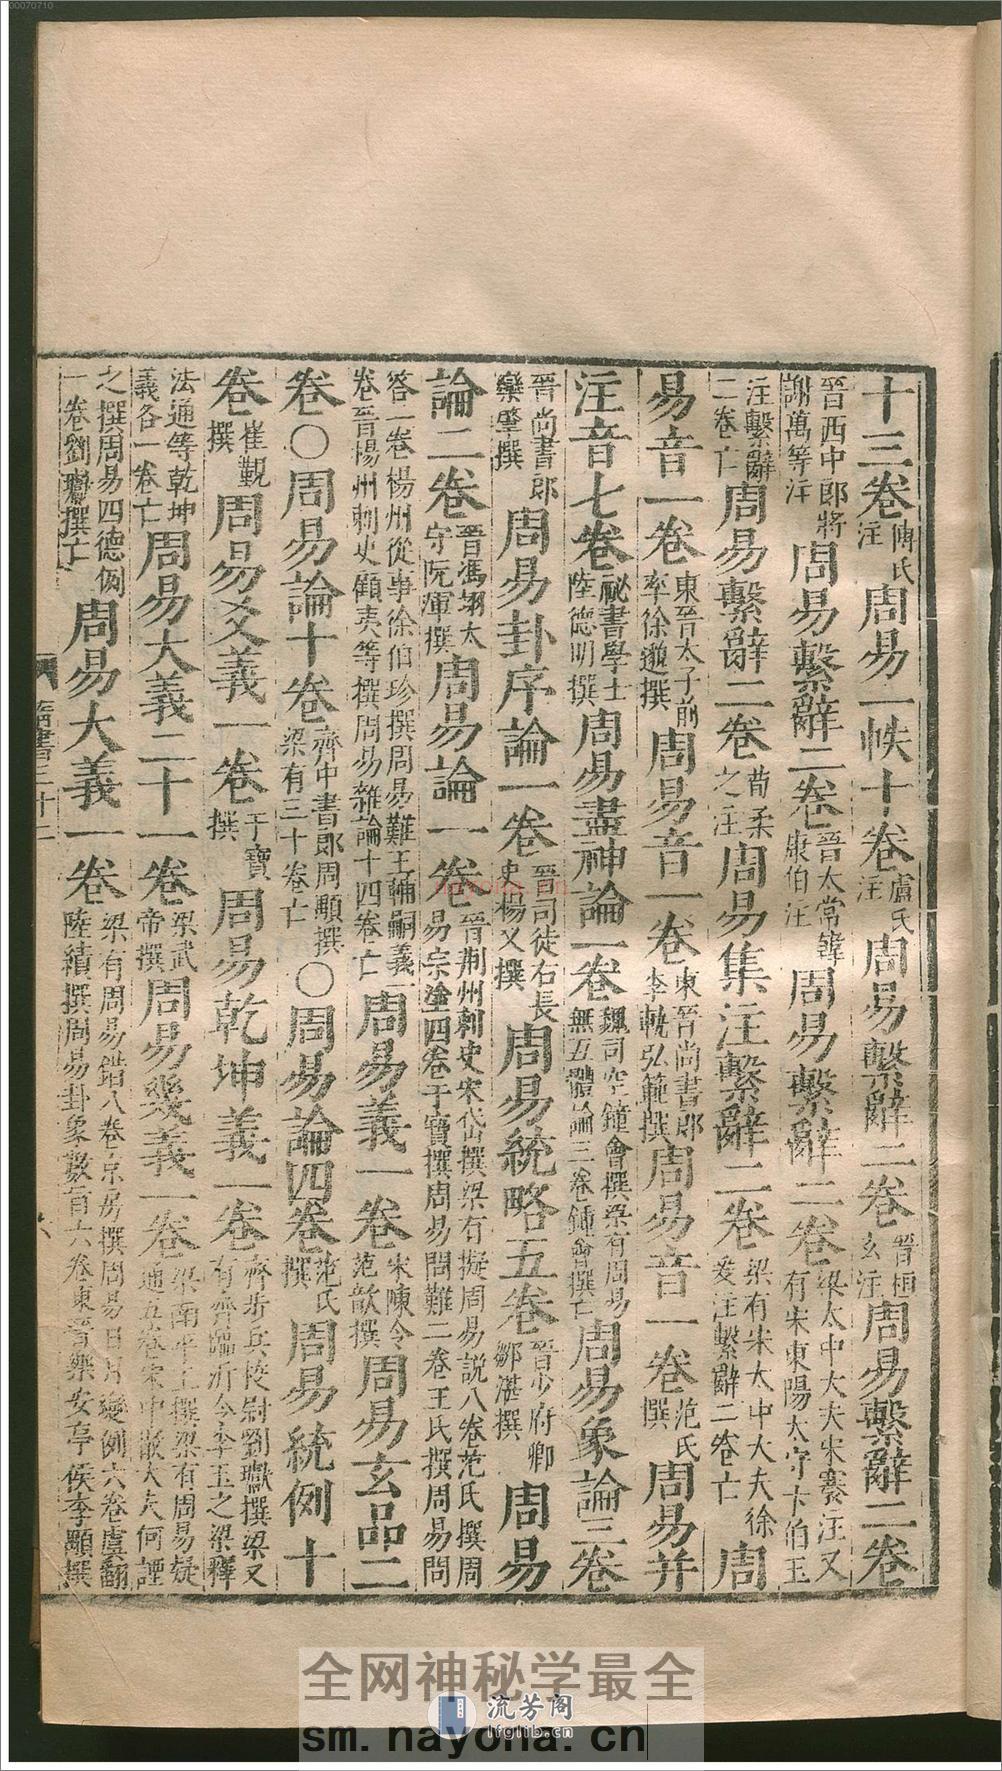 00070710
十三卷傅氏注周易一帙十卷盧氏注周易繫辭二卷晉桓玄注周易繫辭二卷
晉西中郎將謝萬等注周易繫辭二卷晉太常韓康伯注周易繫辭二卷梁太中大夫宋褰注又有宋東陽太守卞伯玉
注繫辭二卷亡周易繫辭二卷荀柔之注周易集注繫辭二卷梁有宋太中大夫徐爰注繫辭二卷亡周
易音一卷東晉太子前率徐邈撰周易音一卷東晉尚書郎李軌弘範撰周易音一卷范氏撰周易并
注音七卷祕書學士陸德明撰周易盡神論一卷魏司空鍾會撰梁有周易無互體論三卷鍾會撰亡周易象論三卷
晉尚書郎欒肇撰周易卦序論一卷晉司徒右長史楊乂撰周易統略五卷晉少府卿鄒湛撰周易
論二卷晉馮翊太守阮渾撰周易論一卷晉荆州刺史宋岱撰梁有擬周易說八卷范氏撰周易宗塗四卷干寶撰周易問難二卷王氏撰周易問
答一卷楊州從事徐伯珍撰周易難王輔嗣義一卷晉楊州刺史顧夷等撰周易雜論十四卷亡周易義一卷宋陳令范歆撰周易玄品二
卷○周易論十卷齊中書郎周顒撰梁有三十卷亡○周易論四卷范氏撰周易統例十
卷崔覲撰周易爻義一卷干寶撰周易乾坤義一卷齊步兵校尉劉瓛撰梁又有齊臨沂令李玉之梁釋
法通等乾坤義各一卷亡周易大義二十一卷梁武帝撰周易幾義一卷梁南平王撰梁有周易疑通五卷宋中散大夫何諲
之撰周易四德例一卷劉瓛撰亡周易大義一卷梁有周易錯八卷京房撰周易日月變例六卷虞翻陸績撰周易卦象數旨六卷東晉樂安亭侯李顒撰
隋書三十二
nayona.cn
全网神秘学最全
流芳阁
lfglib.cn
sm.nayona.cn